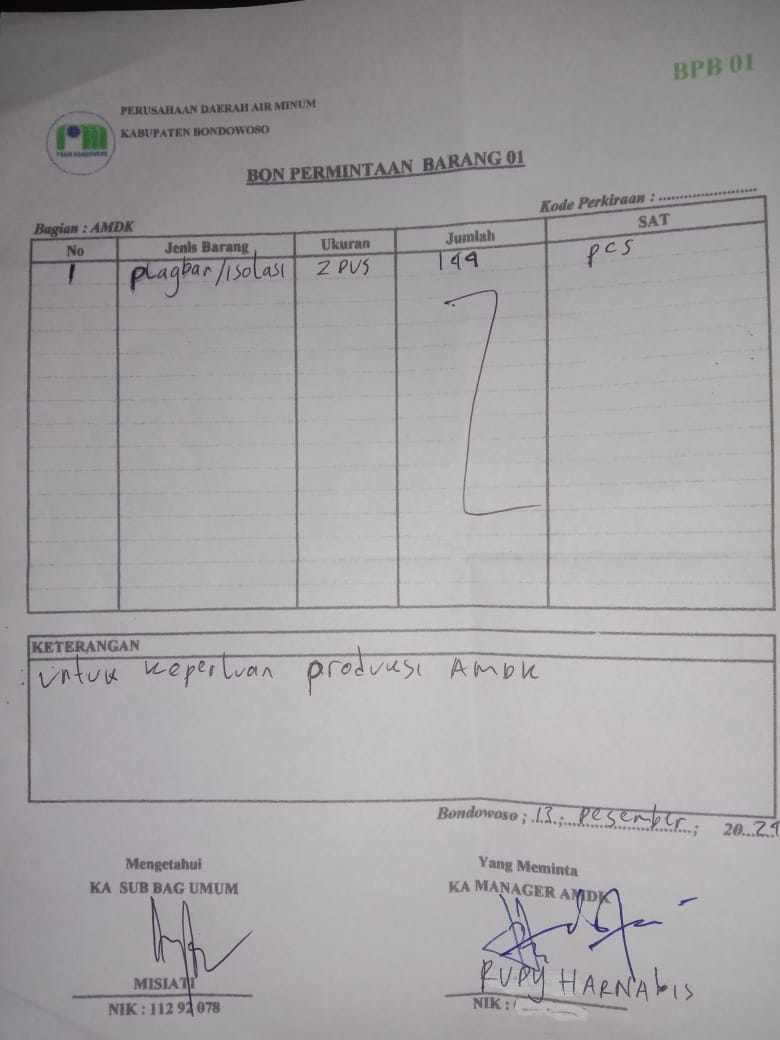 BPB 01
PERUSAHAAN DAERAH AIR MINUM
KABUPATEN BONDOWOSO
BON PERMINTAAN BARANG 01
Kode Perkiraan : ........................
Bagian : AMDK
No Jenis Barang Ukuran Jumlah SAT
1 plagbar/isolasi 2 DUS 144 pcs
KETERANGAN
untuk keperluan produksi AMDK
Bondowoso ; 13 ; Desember ; 2024
Mengetahui
KA SUB BAG UMUM
MISIATI
NIK : 112 92 078
Yang Meminta
KA MANAGER AMDK
RUDY HARNAbis
NIK :